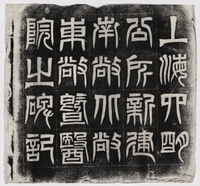 上海四明
公所新建
南敞北敞
東敞暨醫
院之碑記